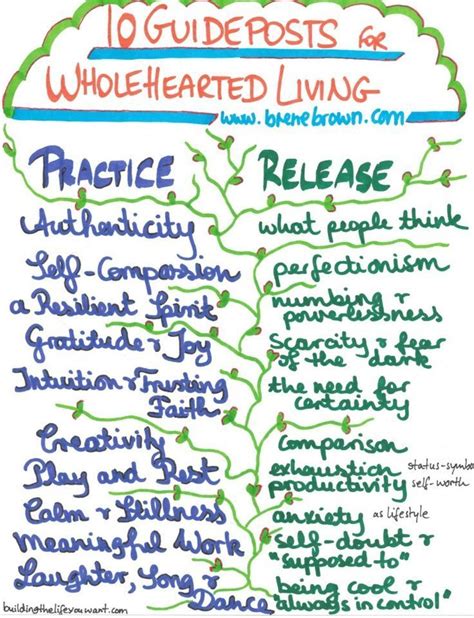 10 GUIDEPOSTS FOR
WHOLEHEARTED LIVING
www.brenebrown.com
PRACTICE
Authenticity
Self-Compassion
a Resilient Spirit
Gratitude & Joy
Intuition & Trusting
Faith
Creativity
Play and Rest
Calm & Stillness
Meaningful Work
Laughter, Song &
Dance
RELEASE
what people think
perfectionism
numbing &
powerlessness
Scarcity & fear
of the dark
the need for
certainty
comparison
exhaustion status-symbo
productivity self-worth
anxiety as lifestyle
self-doubt &
"supposed to"
being cool &
"always in control"
buildingthelifeyouwant.com